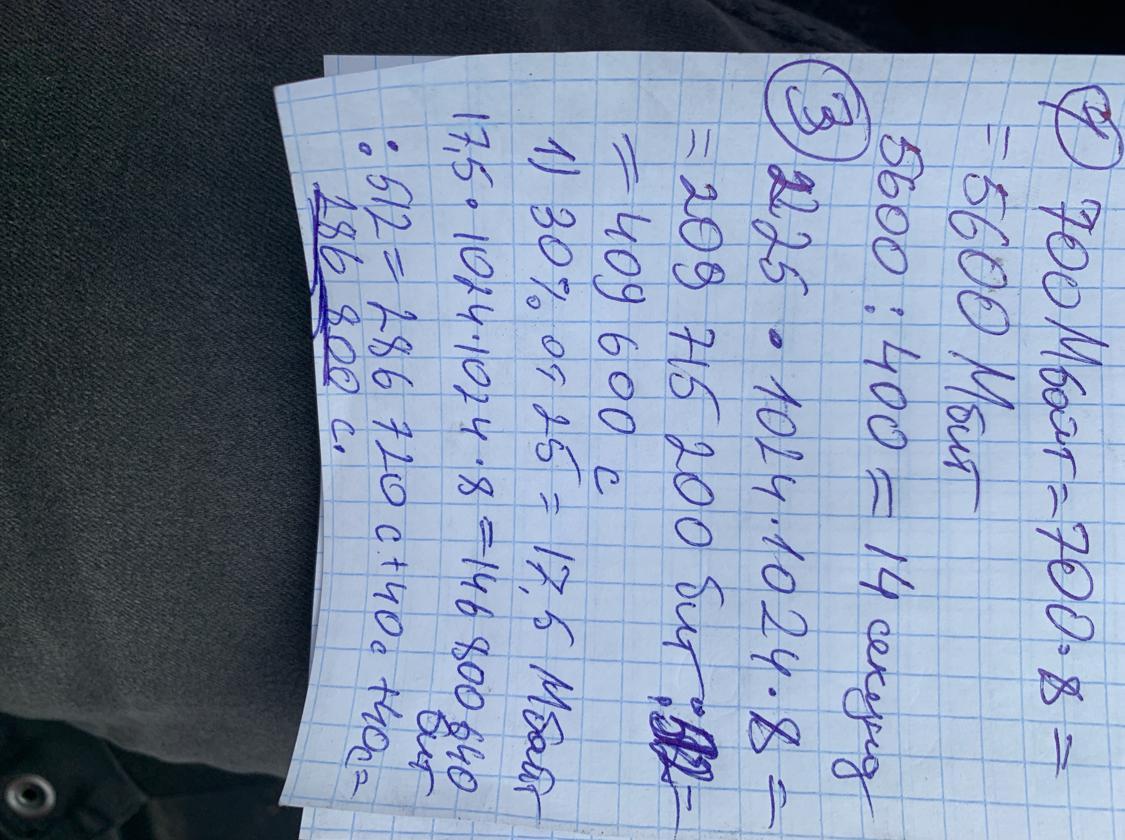 ④ 700 Мбайт = 700 · 8 =
= 5600 Мбит
5600 : 400 = 14 секунд
③ 225 · 1024 · 1024 · 8 =
= 209 715 200 бит : =
= 409 600 с
1) 30% от 25 = 17,5 Мбайт
17,5 · 1024 · 1024 · 8 = 146 800 640 бит
: 512 = 286 720 с + 40с + 40с =
286 800 с.